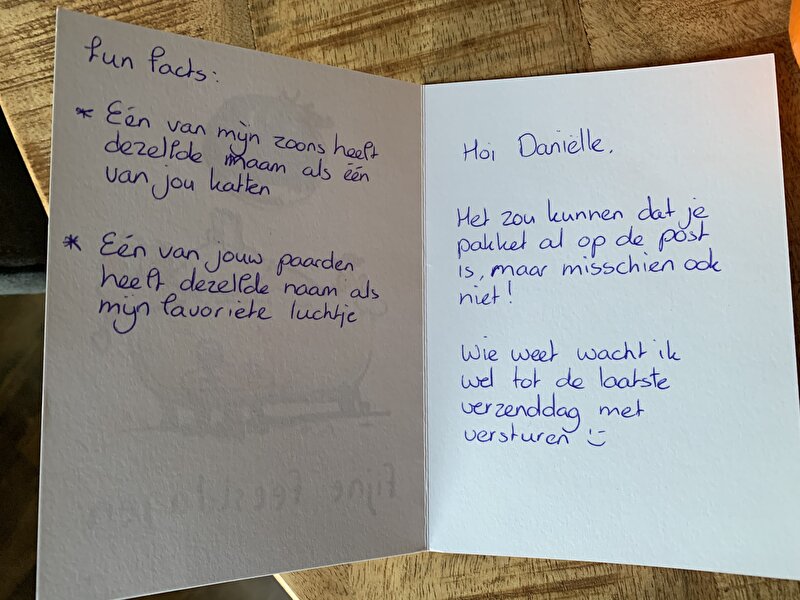 fun facts:
* Eén van mijn zoons heeft
dezelfde naam als één
van jou katten
* Eén van jouw paarden
heeft dezelfde naam als
mijn favoriete luchtje
fijne feestdagen
Hoi Daniëlle,
Het zou kunnen dat je
pakket al op de post
is, maar misschien ook
niet!
Wie weet wacht ik
wel tot de laatste
verzenddag met
versturen :)